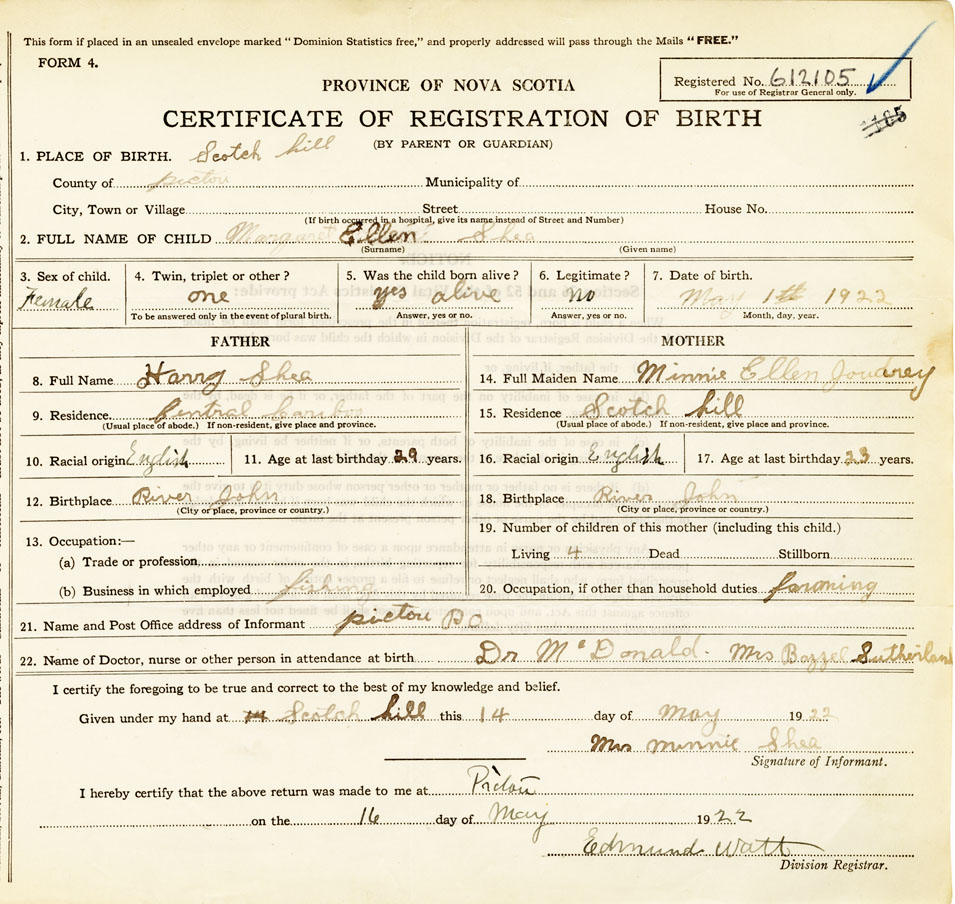 This form if placed in an unsealed envelope marked "Dominion Statistics free," and properly addressed will pass through the Mails "FREE."
FORM 4.
Registered No. 612105
For use of Registrar General only.
PROVINCE OF NOVA SCOTIA
CERTIFICATE OF REGISTRATION OF BIRTH
(BY PARENT OR GUARDIAN)
1. PLACE OF BIRTH. Scotch hill
County of pictou Municipality of
City, Town or Village Street House No.
(If birth occurred in a hospital, give its name instead of Street and Number)
2. FULL NAME OF CHILD Margaret Ellen Shea
(Surname) (Given name)
3. Sex of child. 4. Twin, triplet or other? 5. Was the child born alive? 6. Legitimate? 7. Date of birth.
Female one yes alive no May 1st 1922
To be answered only in the event of plural birth. Answer, yes or no. Answer, yes or no. Month, day, year.
FATHER
8. Full Name Harry Shea
9. Residence. Central Caribou
(Usual place of abode.) If non-resident, give place and province.
10. Racial origin English 11. Age at last birthday 29 years.
12. Birthplace River John
(City or place, province or country.)
13. Occupation:—
(a) Trade or profession
(b) Business in which employed fishing
MOTHER
14. Full Maiden Name Minnie Ellen Joudrey
15. Residence Scotch hill
(Usual place of abode.) If non-resident, give place and province.
16. Racial origin English 17. Age at last birthday 23 years.
18. Birthplace River John
(City or place, province or country.)
19. Number of children of this mother (including this child.)
Living 4 Dead Stillborn
20. Occupation, if other than household duties farming
21. Name and Post Office address of Informant pictou PO
22. Name of Doctor, nurse or other person in attendance at birth Dr McDonald. Mrs Sutherland
I certify the foregoing to be true and correct to the best of my knowledge and belief.
Given under my hand at Scotch hill this 14 day of May 1922
Mrs minnie Shea
Signature of Informant.
I hereby certify that the above return was made to me at Pictou
on the 16 day of May 1922
Edmund Watt
Division Registrar.